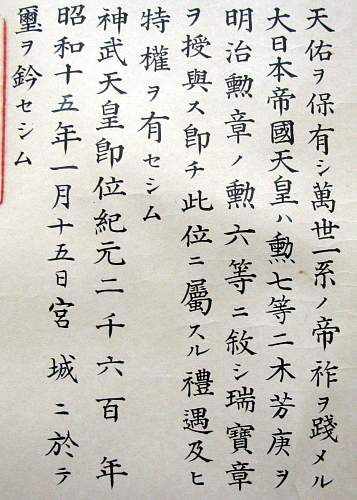 天佑ヲ保有シ萬世一系ノ帝祚ヲ踐メル
大日本帝國天皇ハ勲七等二木芳庚ヲ
明治勲章ノ勲六等ニ敍シ瑞寶章
ヲ授與ス即チ此位ニ屬スル禮遇及ヒ
特權ヲ有セシム
神武天皇即位紀元二千六百年
昭和十五年一月十五日宮城ニ於テ
璽ヲ鈐セシム